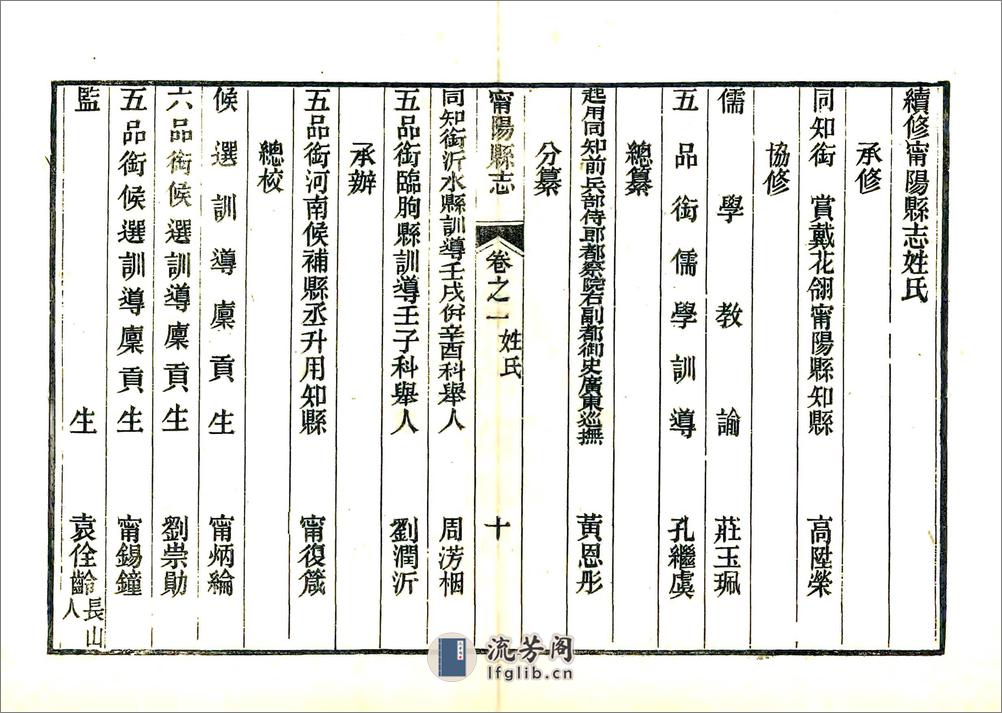 續修甯陽縣志姓氏
承修
同知銜 賞戴花翎甯陽縣知縣 高陞榮
協修
儒學教諭 莊玉珮
五品銜儒學訓導 孔繼虞
總纂
起用同知前兵部侍郎都察院右副都御史廣東巡撫 黃恩彤
分纂
甯陽縣志 卷之一 姓氏 十
同知銜沂水縣訓導壬戌併辛酉科舉人 周涝橍
五品銜臨朐縣訓導壬子科舉人 劉潤沂
承辦
五品銜河南候補縣丞升用知縣 甯復箴
總校
候選訓導廩貢生 甯炳綸
六品銜候選訓導廩貢生 劉崇勛
五品銜候選訓導廩貢生 甯錫鐘
監生 袁佺齡長山人
流芳阁
lfglib.cn